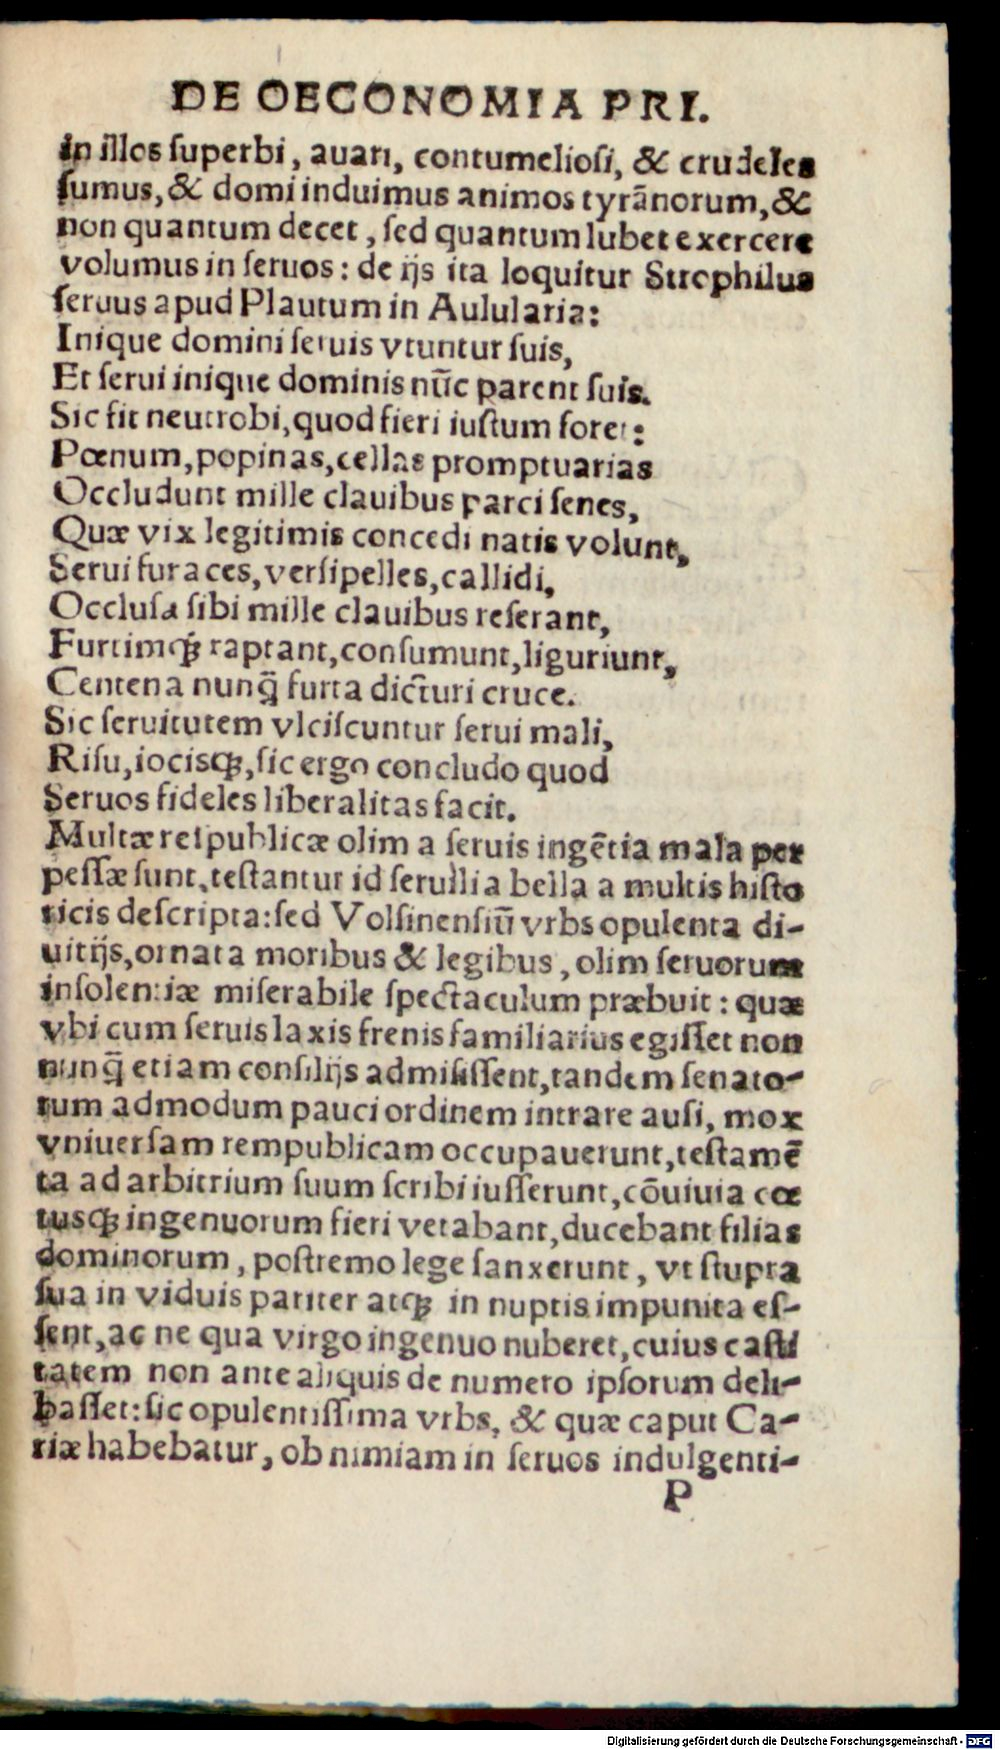 DE OECONOMIA PRI.
in illos superbi, auari, contumeliosi, & crudeles
sumus, & domi induimus animos tyrãnorum, &
non quantum decet, sed quantum lubet exercere
volumus in seruos: de ijs ita loquitur Strophilus
seruus apud Plautum in Aulularia:
Inique domini seruis vtuntur suis,
Et serui inique dominis nũc parent suis.
Sic fit neutrobi, quod fieri iustum foret:
Pœnum, popinas, cellas promptuarias
Occludunt mille clauibus parci senes,
Quæ vix legitimis concedi natis volunt,
Serui furaces, versipelles, callidi,
Occlusa sibi mille clauibus reserant,
Furtimq́; raptant, consumunt, liguriunt,
Centena nunq̃ furta dicturi cruce.
Sic seruitutem vlciscuntur serui mali,
Risu, iocisq́;, sic ergo concludo quod
Seruos fideles liberalitas facit.
Multæ reipublicæ olim a seruis ingẽtia mala per
pessæ sunt, testantur id seruilia bella a multis histo
ricis descripta: sed Volsinensiũ vrbs opulenta di-
uitijs, ornata moribus & legibus, olim seruorum
insolentiæ miserabile spectaculum præbuit: quæ
vbi cum seruis laxis frenis familiarius egisset non
nunq̃ etiam consilijs admisissent, tandem senato-
rum admodum pauci ordinem intrare ausi, mox
vniuersam rempublicam occupauerunt, testamẽ
ta ad arbitrium suum scribi iusserunt, cõuiuia cœ
tusq́; ingenuorum fieri vetabant, ducebant filias
dominorum, postremo lege sanxerunt, vt stupra
sua in viduis pariter atq́; in nuptis impunita es-
sent, ac ne qua virgo ingenuo nuberet, cuius casti
tatem non ante aliquis de numero ipsorum deli-
basset: sic opulentissima vrbs, & quæ caput Ca-
riæ habebatur, ob nimiam in seruos indulgenti-
P
Digitalisierung gefördert durch die Deutsche Forschungsgemeinschaft - DFG